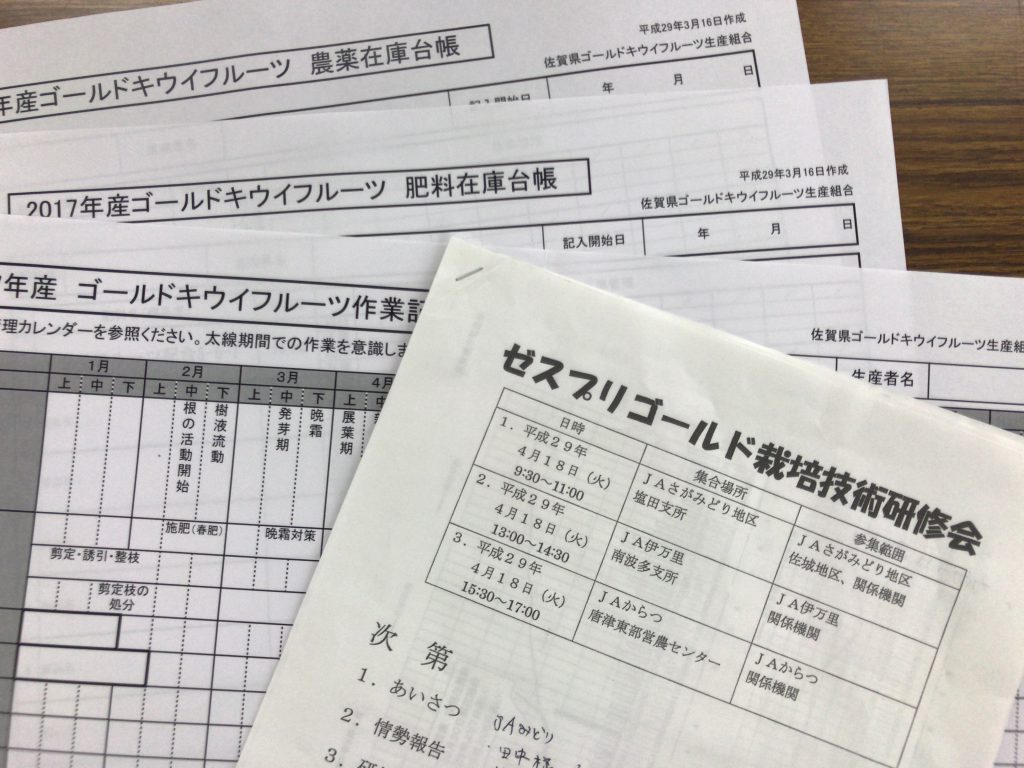 平成29年3月16日作成
佐賀県ゴールドキウイフルーツ生産組合
年産ゴールドキウイフルーツ 農薬在庫台帳
記入開始日 年 月 日
平成29年3月16日作成
佐賀県ゴールドキウイフルーツ生産組合
2017年産ゴールドキウイフルーツ 肥料在庫台帳
記入開始日 年 月 日
年産 ゴールドキウイフルーツ作業
佐賀県ゴールドキウイフルーツ生産組
理カレンダーを参照ください。太線期間での作業を意識しま
生産者名
1月 2月 3月 4月
上 中 下 上 中 下 上 中 下 上 中
根の活動開始
樹液流動
発芽期
晩霜
展葉期
施肥(春肥) 晩霜対策
剪定・誘引・整枝
剪定枝の
処分
ゼスプリゴールド栽培技術研修会
日時 集合場所 参集範囲
1.平成29年
4月18日(火)
9:30~11:00
JAさがみどり地区
塩田支所
JAさがみどり地区
佐城地区、関係機関
2.平成29年
4月18日(火)
13:00~14:30
JA伊万里
南波多支所
JA伊万里
関係機関
3.平成29年
4月18日(火)
15:30~17:00
JAからつ
唐津東部営農センター
JAからつ
関係機関
次 第
1.あいさつ JAみどり
2.情勢報告 田中様
3.研